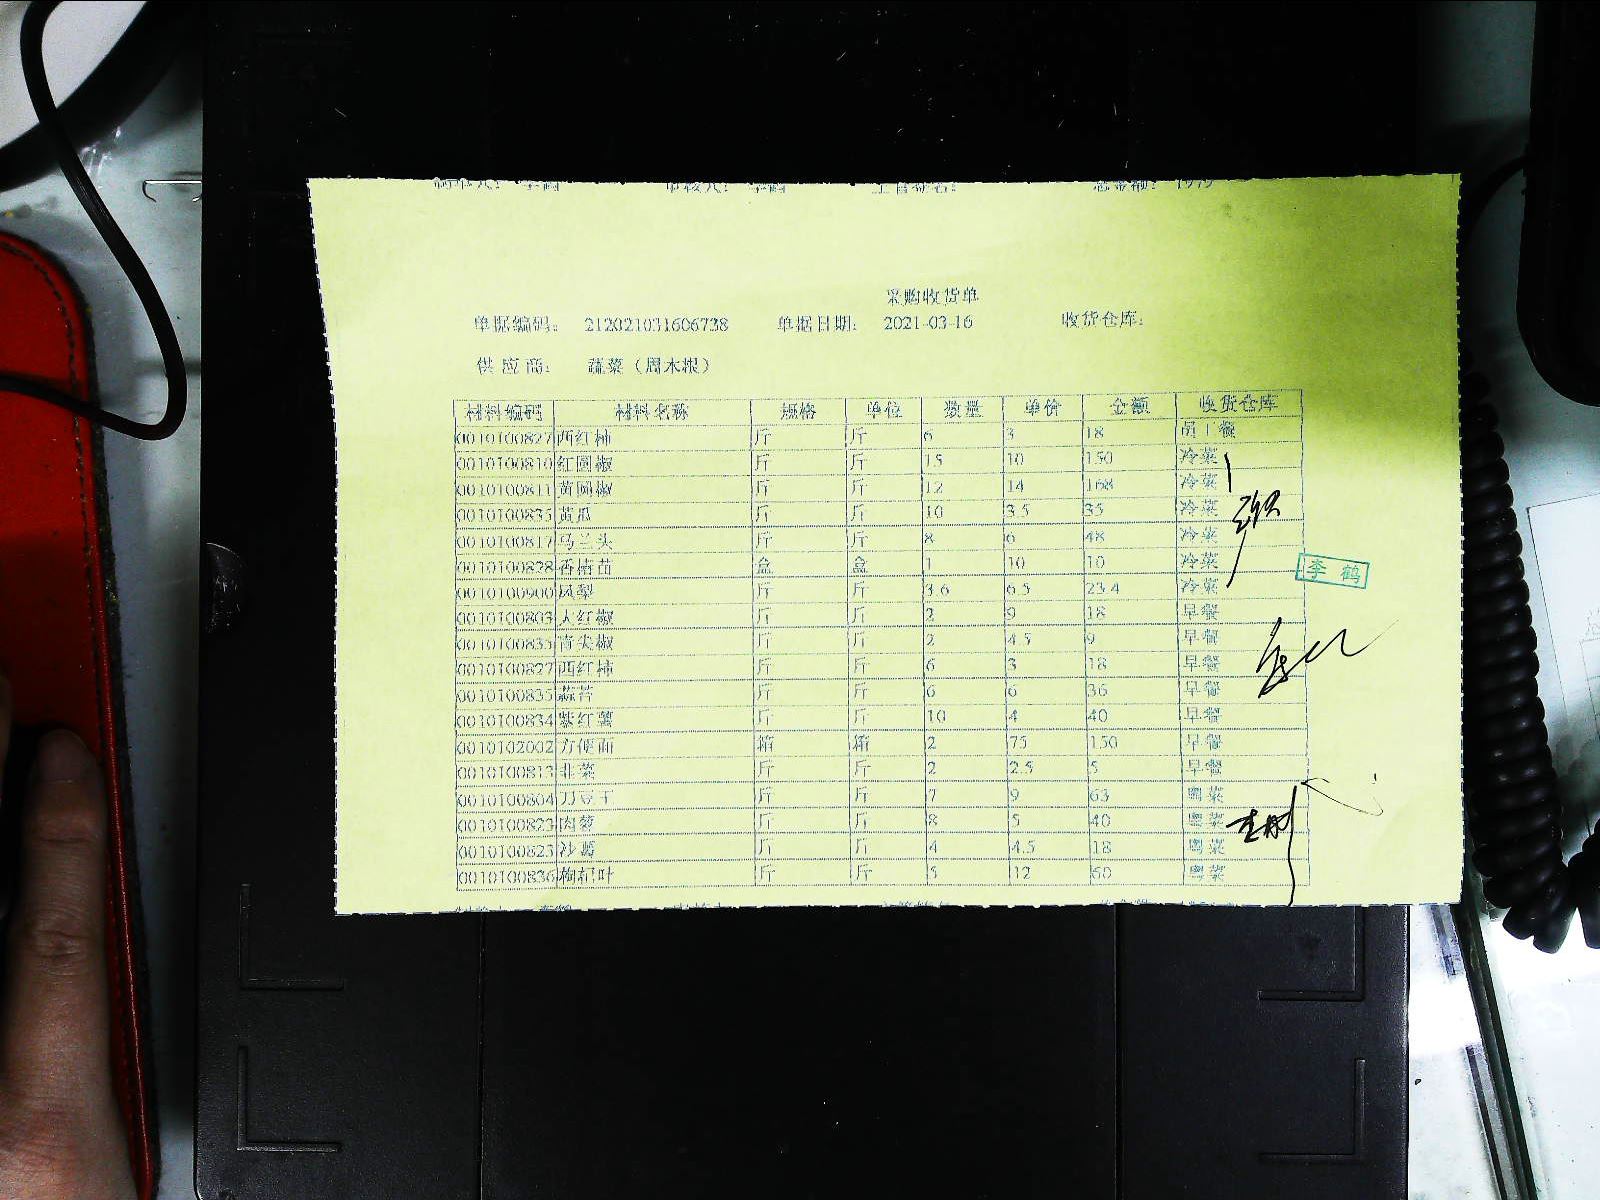 制单人： 李鹤 审核人： 李鹤 主管签名： 总金额： 1979
采购收货单
单据编码： 212021031606738 单据日期： 2021-03-16 收货仓库：
供 应 商： 蔬菜（周木根）
材料编码 材料名称 规格 单位 数量 单价 金额 收货仓库
0010100827 西红柿 斤 斤 6 3 18 员工餐
0010100810 红圆椒 斤 斤 15 10 150 冷菜
0010100811 黄圆椒 斤 斤 12 14 168 冷菜
0010100835 黄瓜 斤 斤 10 3.5 35 冷菜
0010100817 马兰头 斤 斤 8 6 48 冷菜
0010100828 香楠苗 盒 盒 1 10 10 冷菜
0010100900 凤梨 斤 斤 3.6 6.5 23.4 冷菜
李 鹤
0010100803 大红椒 斤 斤 2 9 18 早餐
0010100835 青尖椒 斤 斤 2 4.5 9 早餐
0010100827 西红柿 斤 斤 6 3 18 早餐
0010100835 蒜苔 斤 斤 6 6 36 早餐
0010100834 紫红薯 斤 斤 10 4 40 早餐
0010102002 方便面 箱 箱 2 75 150 早餐
0010100813 韭菜 斤 斤 2 2.5 5 早餐
0010100804 刀豆王 斤 斤 7 9 63 粤菜
0010100823 肉蓉 斤 斤 8 5 40 粤菜
0010100825 沙葛 斤 斤 4 4.5 18 粤菜
0010100836 枸杞叶 斤 斤 5 12 60 粤菜